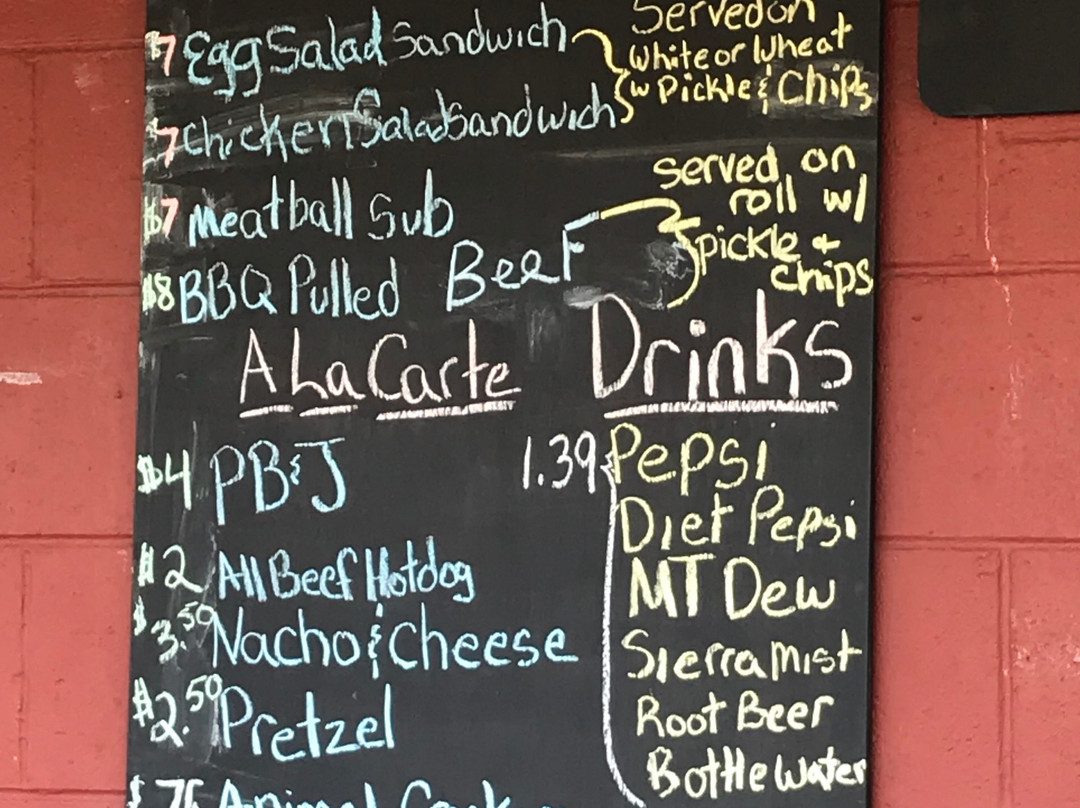 $7 Egg Salad Sandwich
Served on
White or Wheat
w Pickle & Chips
$7 Chicken Salad Sandwich
$7 Meatball Sub
$8 BBQ Pulled Beef
served on
roll w/
pickle +
chips
A La Carte
$4 PB&J
$2 All Beef Hotdog
$3.50 Nacho & Cheese
$2.50 Pretzel
Drinks
1.39 Pepsi
Diet Pepsi
MT Dew
Sierra Mist
Root Beer
Bottle Water